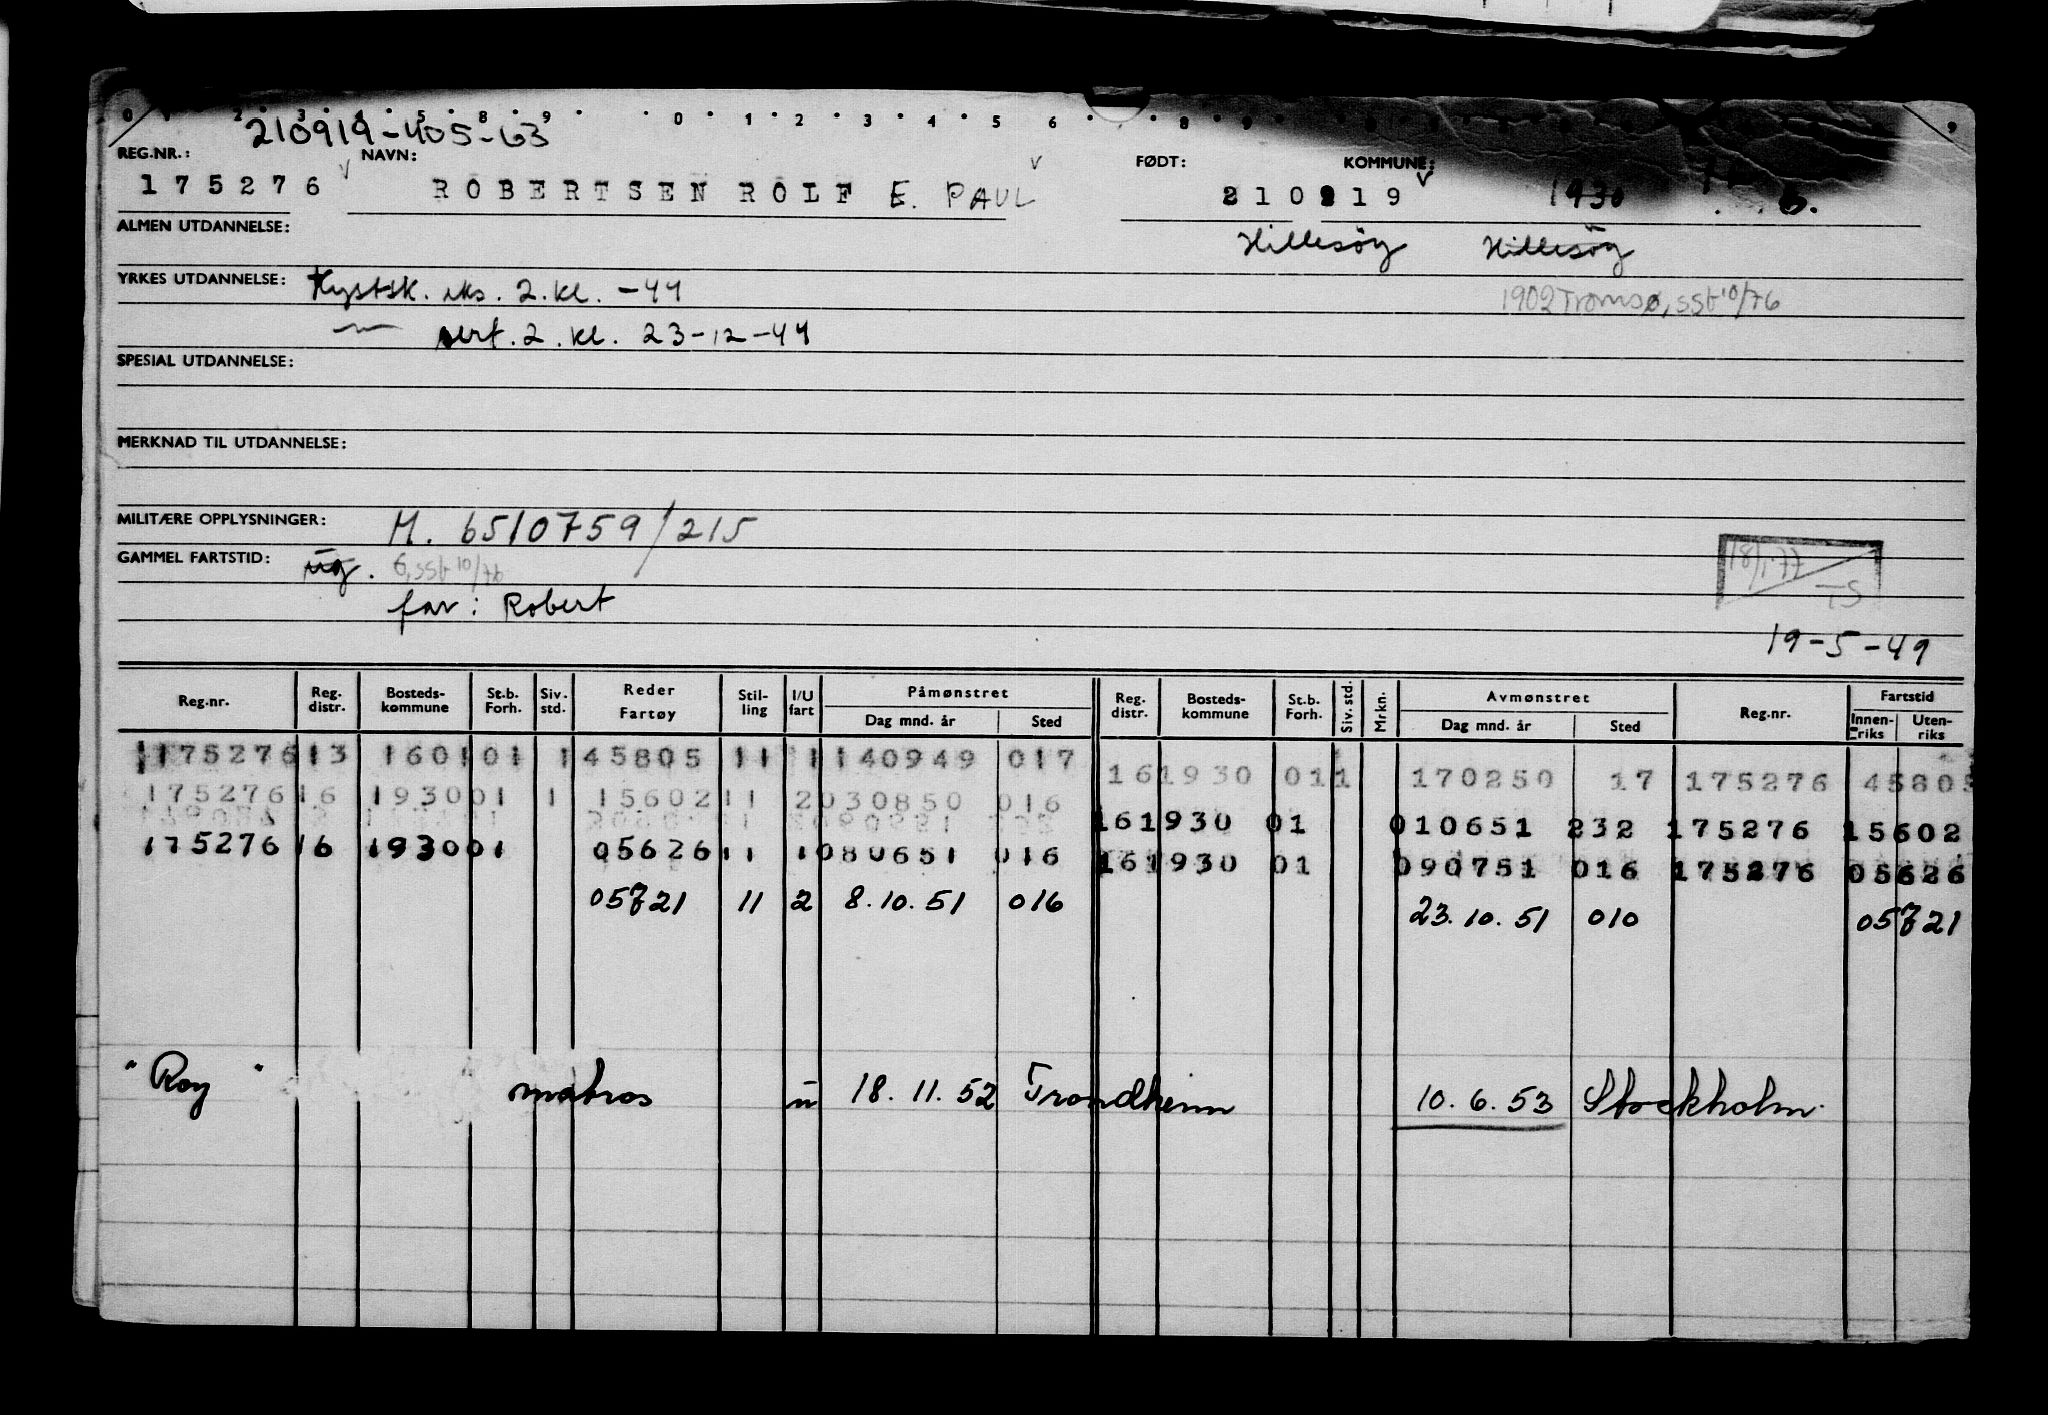 210919-405-63
REG.NR.: NAVN: FØDT: KOMMUNE:
175276 ROBERTSEN ROLF E. PAUL 210919 1930
ALMEN UTDANNELSE: Hillesøy Hillesøy
YRKES UTDANNELSE: Kystsk. eks. 2. kl. -44
1902 Tromsø, sst 10/76
sert. 2. kl. 23-12-44
SPESIAL UTDANNELSE:
MERKNAD TIL UTDANNELSE:
MILITÆRE OPPLYSNINGER: M. 6510759/215
GAMMEL FARTSTID: ug. G, sst 10/76
18/1-77
TS
far: Robert
19-5-49
Reg.nr. Reg. distr. Bosteds- kommune St.b. Forh. Siv. std. Reder Fartøy Stil- ling I/U fart Påmønstret Dag mnd. år Sted Reg. distr. Bosteds- kommune St.b. Forh. Siv. std. Mrkn. Avmønstret Dag mnd. år Sted Reg.nr. Fartstid Innen- riks Uten- riks
175276 13 1601 01 1 45805 11 1 140949 017
161930 01 1 170250 17 175276 45805
175276 16 1930 01 1 15602 11 2 030850 016
161930 01 010651 232 175276 15602
175276 16 1930 01 05626 11 1 080651 016
161930 01 090751 016 175276 05626
05721 11 2 8.10.51 016 23.10.51 010 05721
"Roy" matros u 18.11.52 Trondheim 10.6.53 Stockholm.